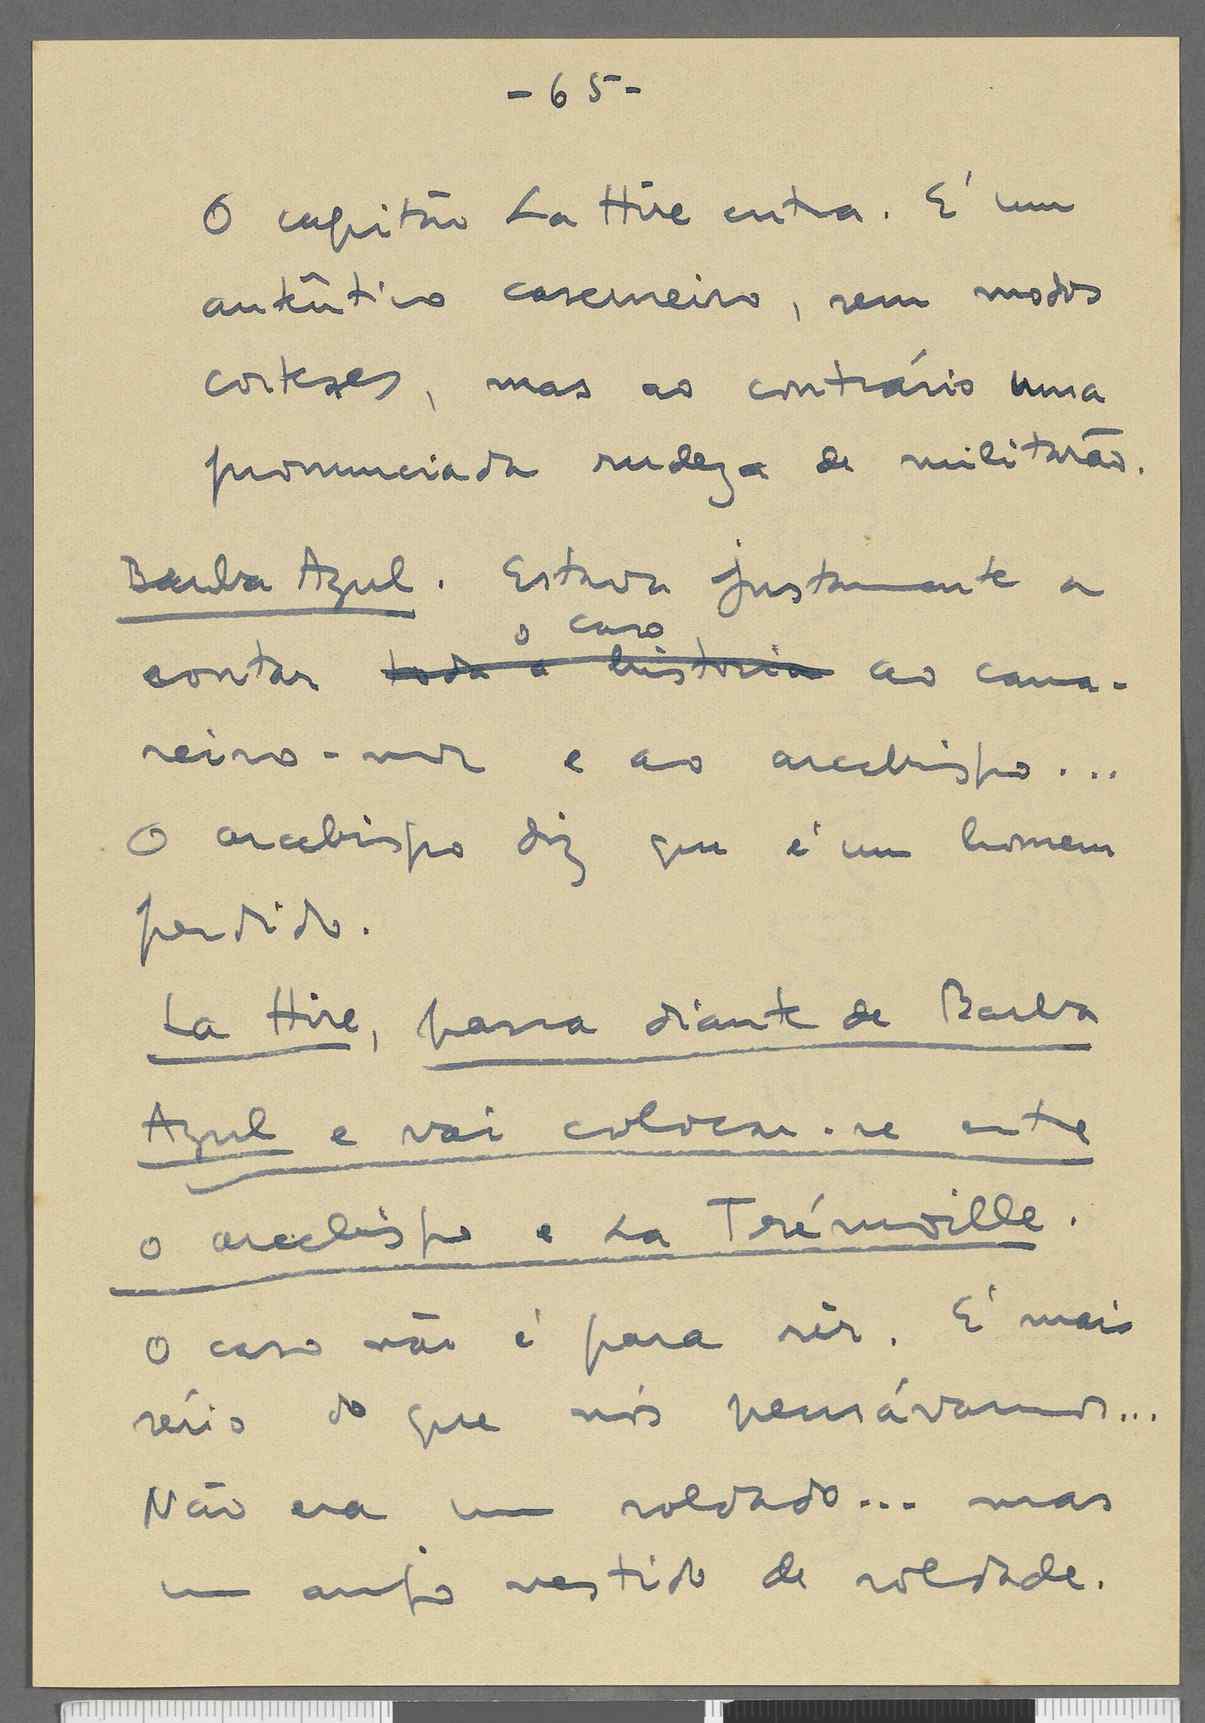 -65-
O capitão La Hire entra. É um
autêntico caserneiro, sem modos
corteses, mas ao contrário uma
pronunciada rudeza de militarão.
Barba Azul. Estava justamente a
o caso
contar toda a historia ao cama-
reiro-mor e ao arcebispo...
O arcebispo diz que é um homem
perdido.
La Hire, passa diante de Barba
Azul e vai colocar-se entre
o arcebispo e La Trémoille.
O caso não é para rir. É mais
sério do que nós pensávamos...
Não era um soldado... mas
um anjo vestido de soldado.